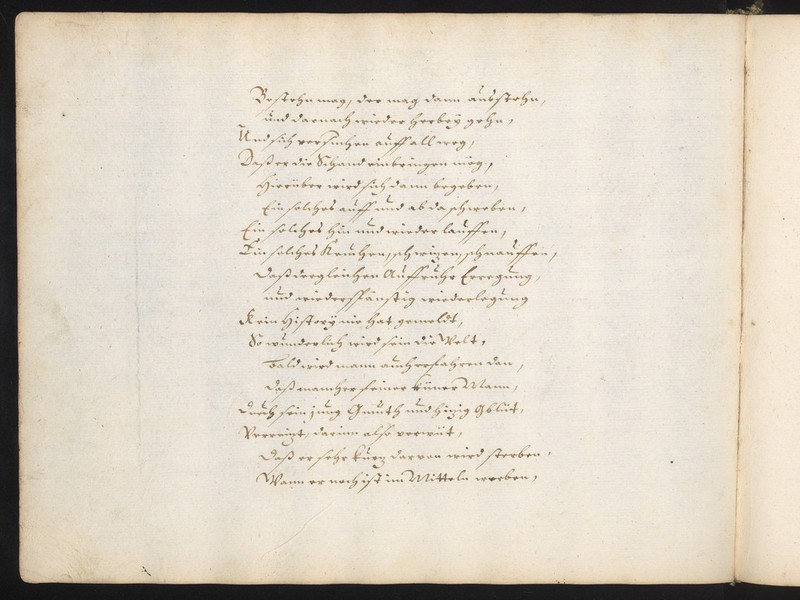 Bestehn mag, der mag dann außstehn,
und darnach wieder herbeÿ gehn,
Und sich versuchen auff all weg,
Daß er die Schand einbringen mög,
Hierüber wird sich dann begeben,
Ein solches auff und ab da schweben,
Ein solches hin und wieder lauffen,
Ein solches Keuchen, schwizen, schnauffen,
Daß dergleichen Auffruhr Erregung,
und wiederspänstig wiederlegung
Kein Historÿ nie hat gemeldt,
So wunderlich wird sein die Welt,
Bald wird mann auch erfahren dan,
daß mancher feiner küner Mann,
Durch sein jung Gmuth und hizig Gblüt,
Verreizt, darinn also verwüt,
Daß er sehr kurz darvon wird sterben,
Wann er noch ist im Mitteln werben,